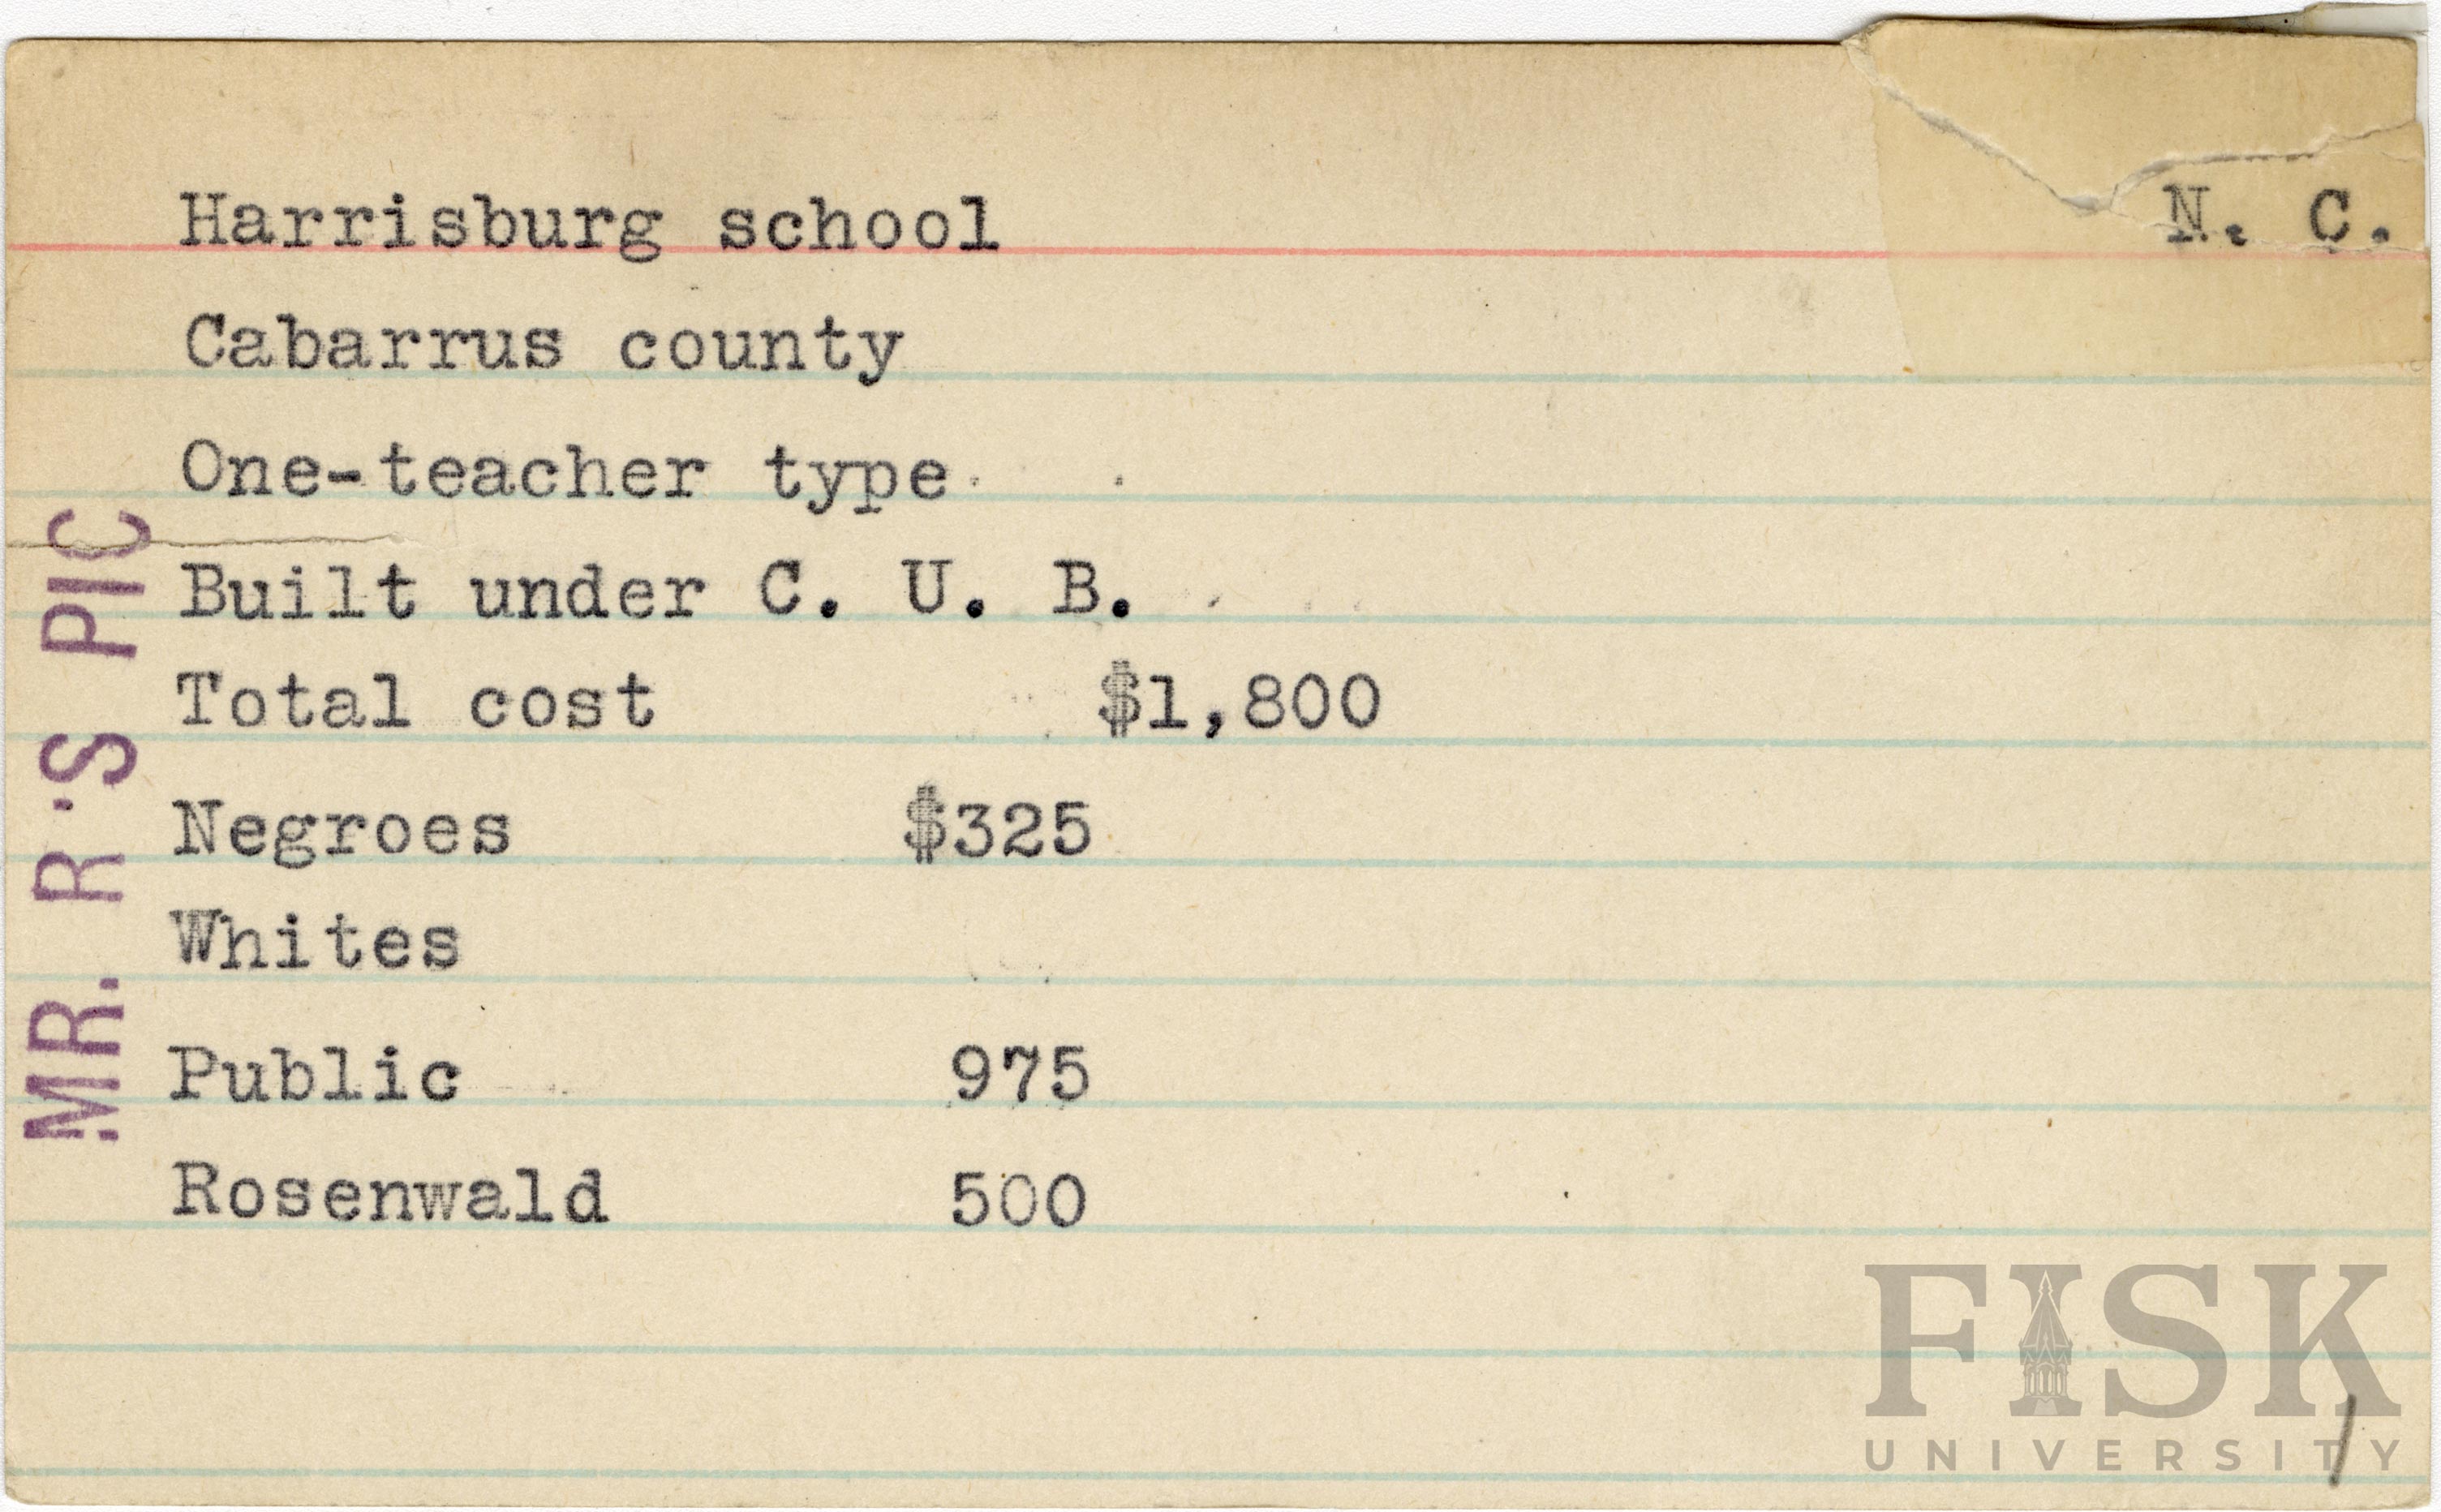 Harrisburg school N. C.
Cabarrus county
One-teacher type
Built under C. U. B.
Total cost $1,800
Negroes $325
Whites
Public 975
Rosenwald 500
MR. R'S PIC
FISK
UNIVERSITY